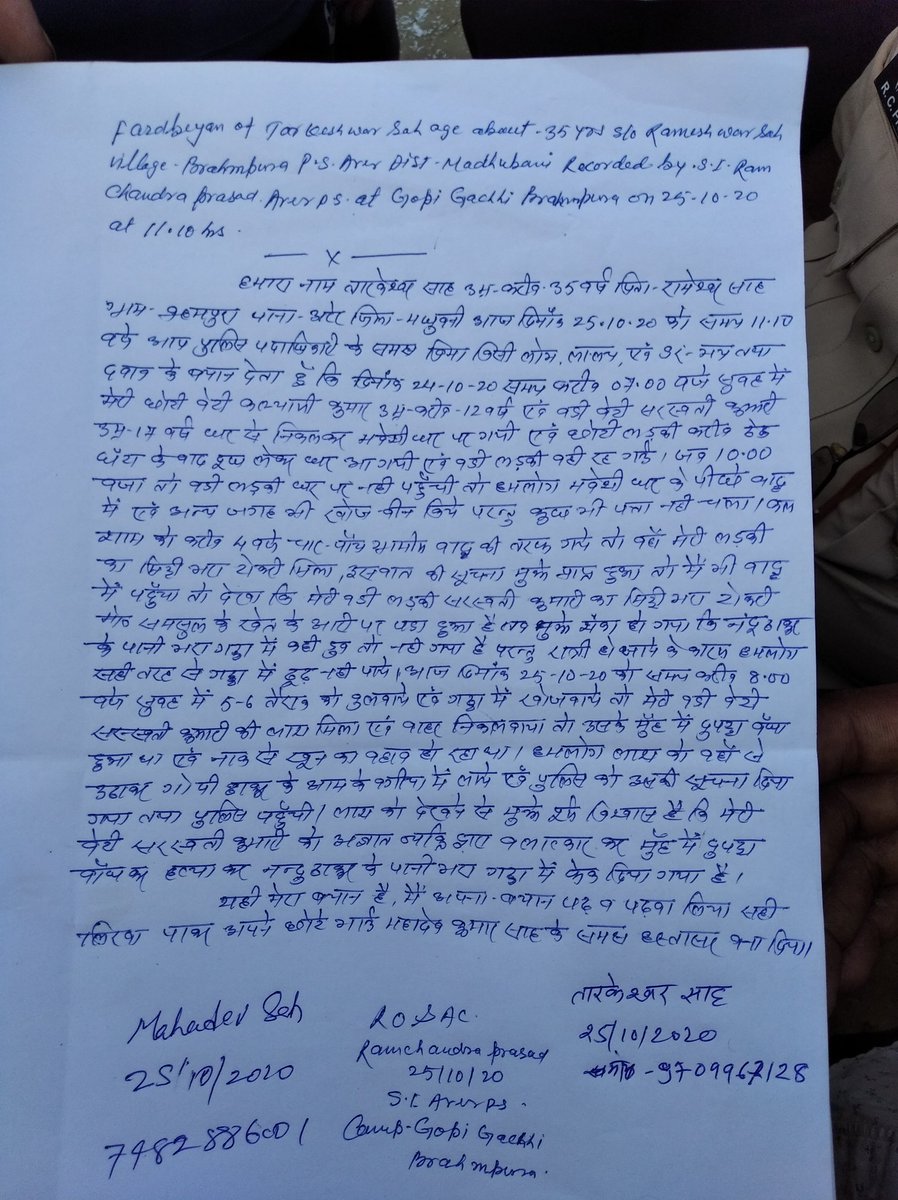 Fardbeyan of Tarkeshwar Sah age about-35 yrs s/o Rameshwar Sah
village-Brahmpura P.S. Arer Dist-Madhubani Recorded by S.I. Ram
Chandra Prasad Arer P.S. at Gopi Gachhi Brahmpura on 25-10-20
at 11.10 hrs.
— x —
हमारा नाम तारकेश्वर साह उम्र-करीब-35 वर्ष पिता-रामेश्वर साह
ग्राम-ब्रहमपुरा थाना-अरेर जिला-मधुबनी आज दिनांक 25.10.20 को समय 11.10
बजे आप पुलिस पदाधिकारी के समक्ष बिना किसी लोभ, लालच, एवं डर-भय तथा
दवाब के बयान देता हूँ कि दिनांक 24-10-20 समय करीब 07.00 बजे सुबह में
मेरी छोटी बेटी कल्याणी कुमारी उम्र-करीब-12 वर्ष एवं बडी बेटी सरस्वती कुमारी
उम्र-17 वर्ष घर से निकलकर मवेशी घर पर गयी एवं छोटी लडकी करीब डेढ
घंटा के बाद दूध लेकर घर आ गयी एवं बडी लडकी वही रह गई। जब 10.00
बजा तो बडी लडकी घर पर नही पहुँची तो हमलोग मवेशी घर के पीछे बाढ़
में एवं अन्य जगह भी खोज बीन किये परन्तु कुछ भी पता नही चला। कल
शाम को करीब 4 बजे चार-पाँच ग्रामीण बाढ़ की तरफ गये तो वहाँ मेरी लडकी
का मिट्टी भरा टोकरी मिला, इस बात की सूचना मुझे प्राप्त हुआ तो मैं भी बाढ़
में पहुँचा तो देखा कि मेरी बडी लडकी सरस्वती कुमारी का मिट्टी भरा टोकरी
मो० समसुल के खेत के आरी पर पडा हुआ है तब मुझे शंका हो गया कि नंदू ठाकुर
के पानी भरा गड्ढा में कही डुब तो नही गया है परन्तु रात्री हो जाने के कारण हमलोग
सही तरह से गड्ढा में ढूढ नही पाये। आज दिनांक 25-10-20 को समय करीब 8.00
बजे सुबह में 5-6 तैराक को बुलवाये एवं गड्ढा में खोजवाये तो मेरी बडी बेटी
सरस्वती कुमारी की लाश मिला एवं बाहर निकलवाया तो उसके मुँह में दुपट्टा बँधा
हुआ था एवं नाक से खून का बहाव हो रहा था। हमलोग लाश को वहाँ से
उठाकर गोपी ठाकुर के आम के बगीचा में लाये एवं पुलिस को इसकी सूचना दिया
गया तथा पुलिस पहुँची। लाश को देखने से मुझे पूर्ण विश्वास है कि मेरी
बेटी सरस्वती कुमारी को अज्ञात व्यक्ति द्वारा बलात्कार कर मुँह में दुपट्टा
बाँधकर हत्या कर नन्दू ठाकुर के पानी भरा गड्ढा में फेक दिया गया है।
यही मेरा बयान है, मैं अपना-बयान पढ़ व पढ़वा लिया सही
लिखा पाकर अपने छोटे भाई महादेव कुमार साह के समक्ष हस्ताक्षर बना दिया।
Mahadev Sah
25/10/2020
7482883600 1
R.O. & A.C.
Ramchandra Prasad
25/10/20
S.I. Arer P.S.
Camp-Gopi Gachhi
Brahmpura.
तारकेश्वर साह
25/10/2020
मो० -9709967128